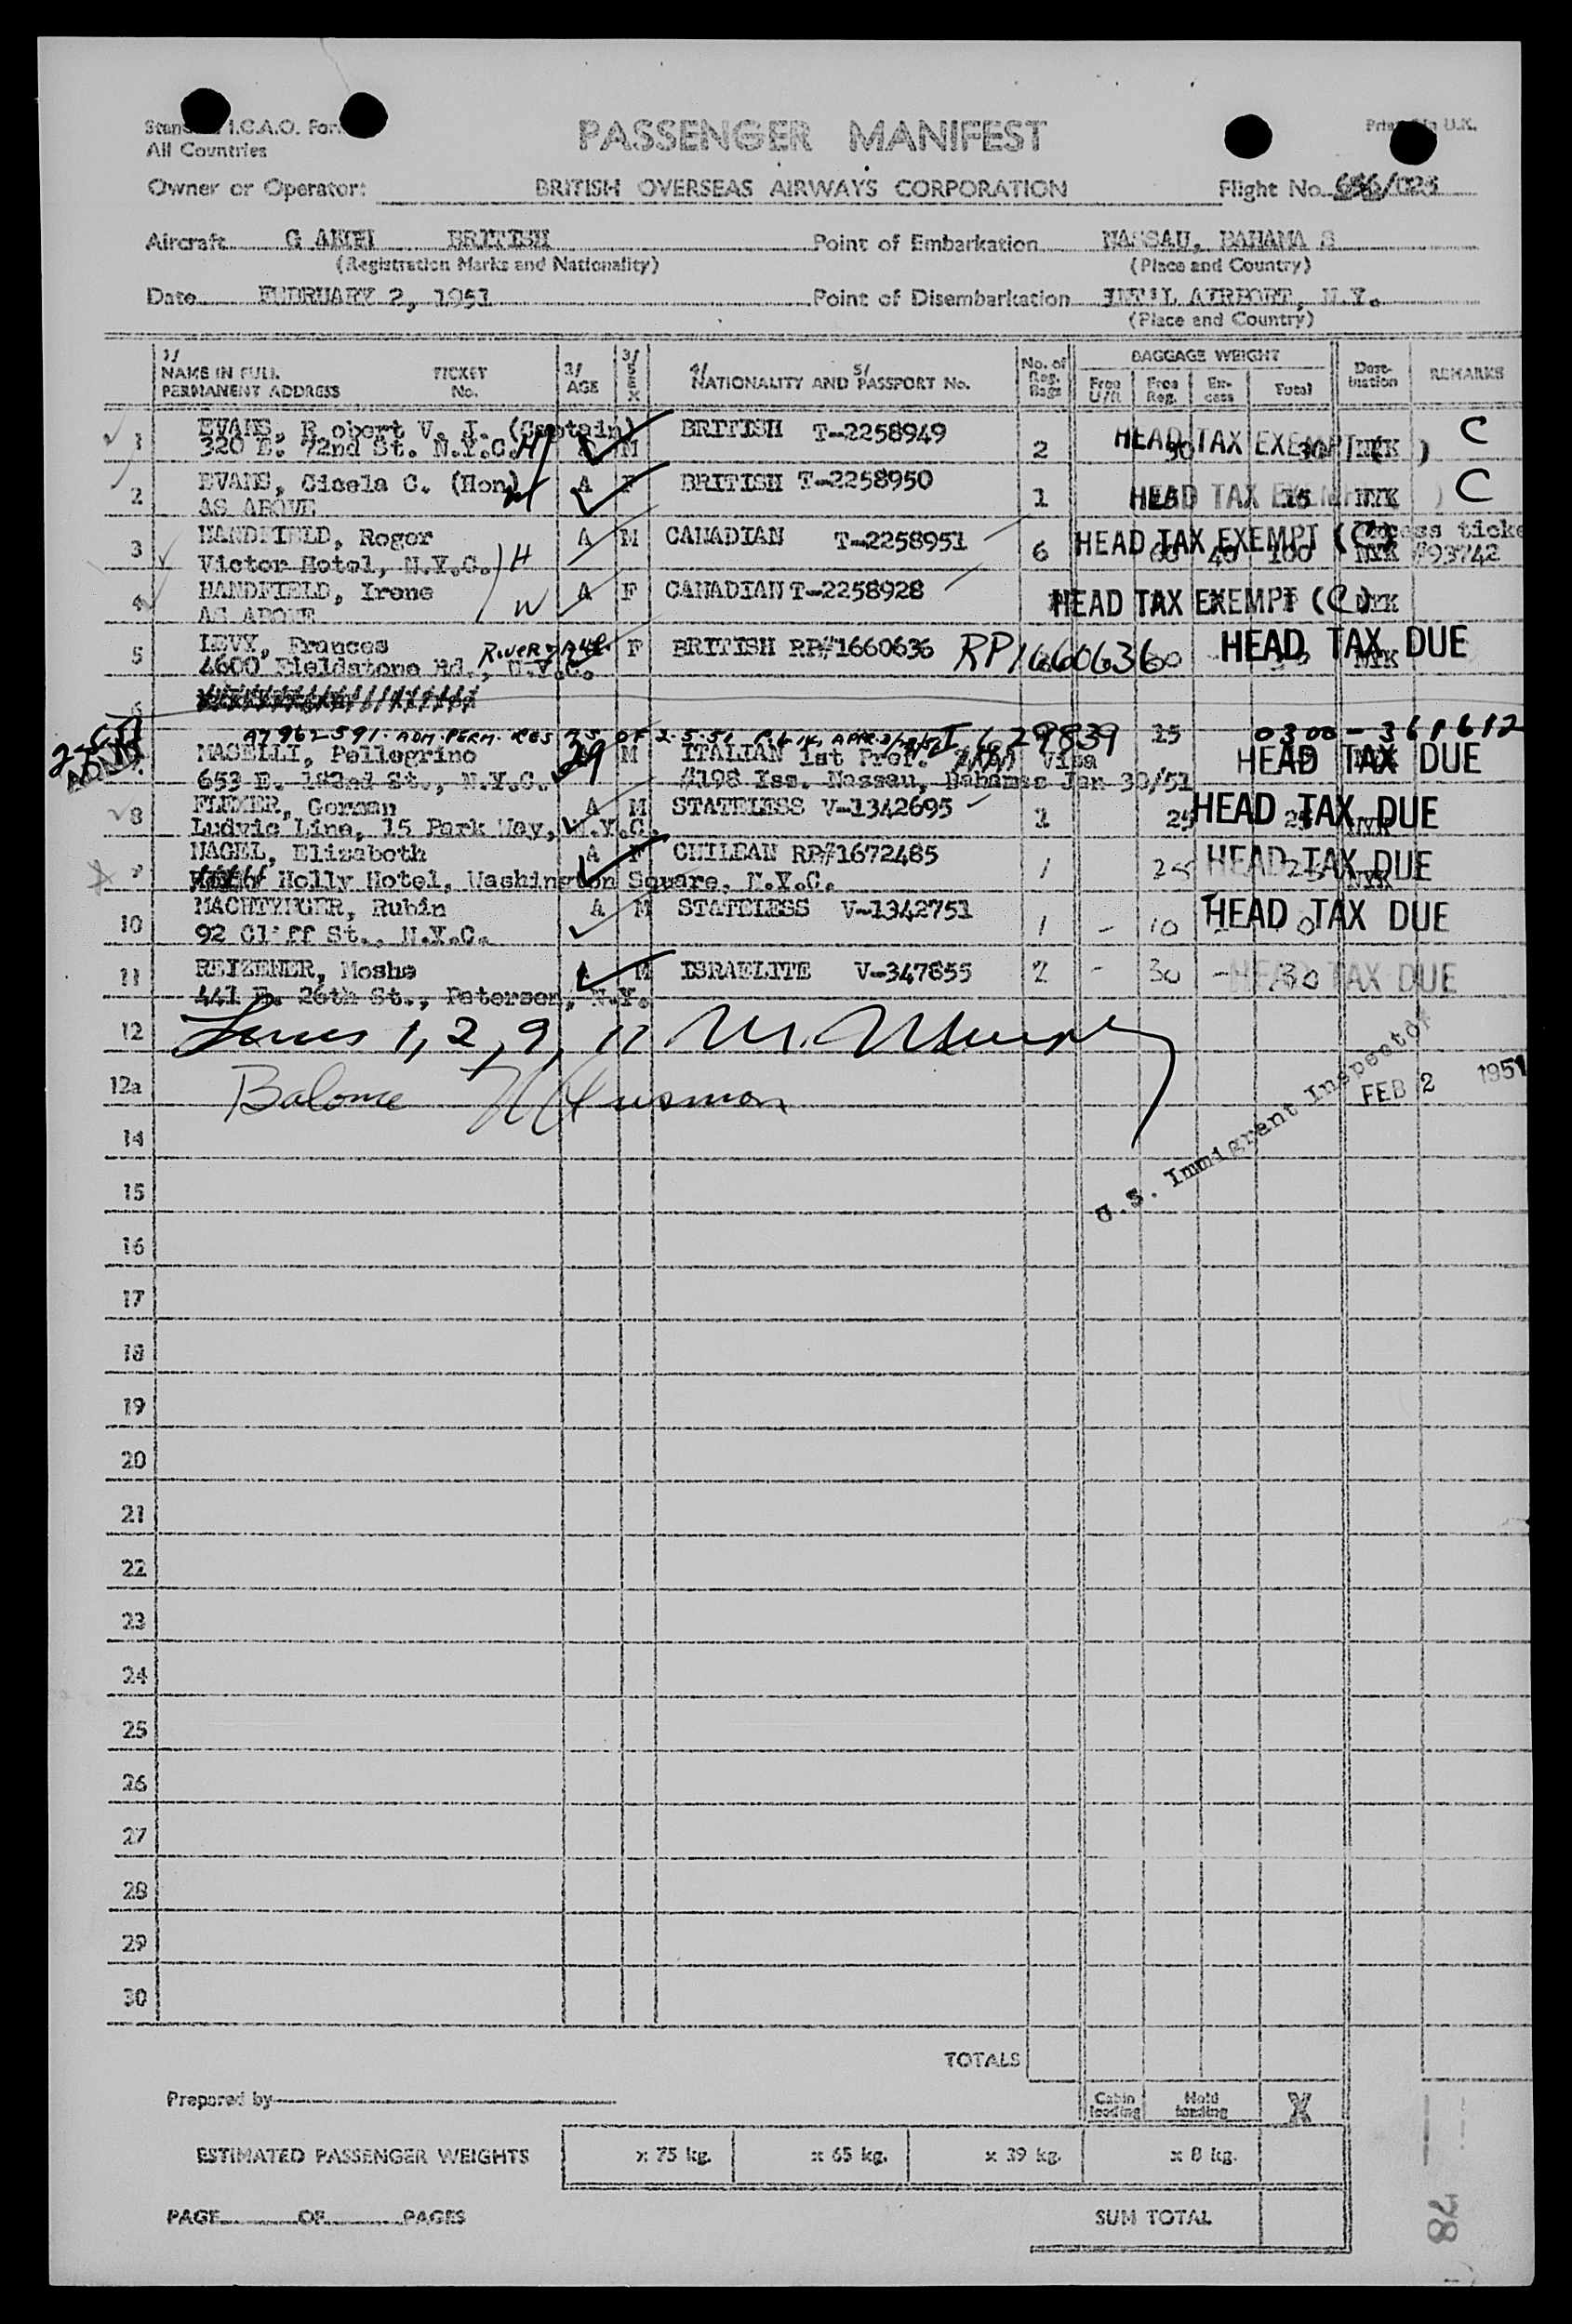 All Countries
PASSENGER MANIFEST
Owner or Operator: BRITISH OVERSEAS AIRWAYS CORPORATION Flight No.
Aircraft BRITISH Point of Embarkation NASSAU, BAHAMA S
(Registration Marks and Nationality) (Place and Country)
Date FEBRUARY 2, 1951 Point of Disembarkation INT'L AIRPORT, N.Y.
(Place and Country)
1/ NAME IN FULL PERMANENT ADDRESS TICKET No. 2/ AGE 3/ SEX 4/ NATIONALITY AND 5/ PASSPORT No. No. of Reg. Bags BAGGAGE WEIGHT Free U/R Free Reg. Ex-cess Total Dest-ination REMARKS
1 EVANS, R obert V. J. (Captain) M BRITISH T-2258949 2 HEAD TAX EXEMPT ( ) NYK C
320 E. 72nd St. N.Y.C. H
2 EVANS, Gisela C. (Hon) W A F BRITISH T-2258950 1 HEAD TAX EXEMPT ( ) 15 NYK C
AS ABOVE
3 HANDFIELD, Roger A M CANADIAN T-2258951 6 HEAD TAX EXEMPT (C) 60 40 100 NYK #93742
Victor Hotel, N.Y.C. H
4 HANDFIELD, Irene W A F CANADIAN T-2258928 HEAD TAX EXEMPT (C) NYK
AS ABOVE
5 LEVY, Frances F BRITISH RP#1660636 RP1660636 HEAD TAX DUE NYK
4600 Fieldstone Rd., N.Y.C.
6
A7962591 ADM. PERM. RES 2.5.51 I 629839 25 0300-361612
MASELLI, Pellegrino 29 M ITALIAN 1st Pref. Visa HEAD TAX DUE
653 E. 182nd St., N.Y.C. #198 Iss. Nassau, Bahamas Jan 30/51
8 German A M STATELESS V-1342695 1 25 HEAD TAX DUE 25 NYK
Ludvic Line, 15 Park Way, N.Y.C.
NAGEL, Elizabeth A F CHILEAN RP#1672485 1 25 HEAD TAX DUE 25 NYK
Holly Hotel, Washington Square, N.Y.C.
10 MACHTYNGER, Rubin A M STATELESS V-1342751 1 - 10 - HEAD TAX DUE
92 Cliff St., N.Y.C.
11 REIZENER, Moshe A M ISRAELITE V-347855 2 - 30 - 30 HEAD TAX DUE
441 E. 26th St., Peterson, N.Y.
12 Lines 1, 2, 9, 11
12a Balance
U.S. Immigrant Inspector
FEB 2 1951
14
15
16
17
18
19
20
21
22
23
24
25
26
27
28
29
30
TOTALS
Prepared by
Cabin loading Hold loading X
ESTIMATED PASSENGER WEIGHTS x 75 kg. x 65 kg. x 39 kg. x 8 kg.
PAGE OF PAGES SUM TOTAL
78